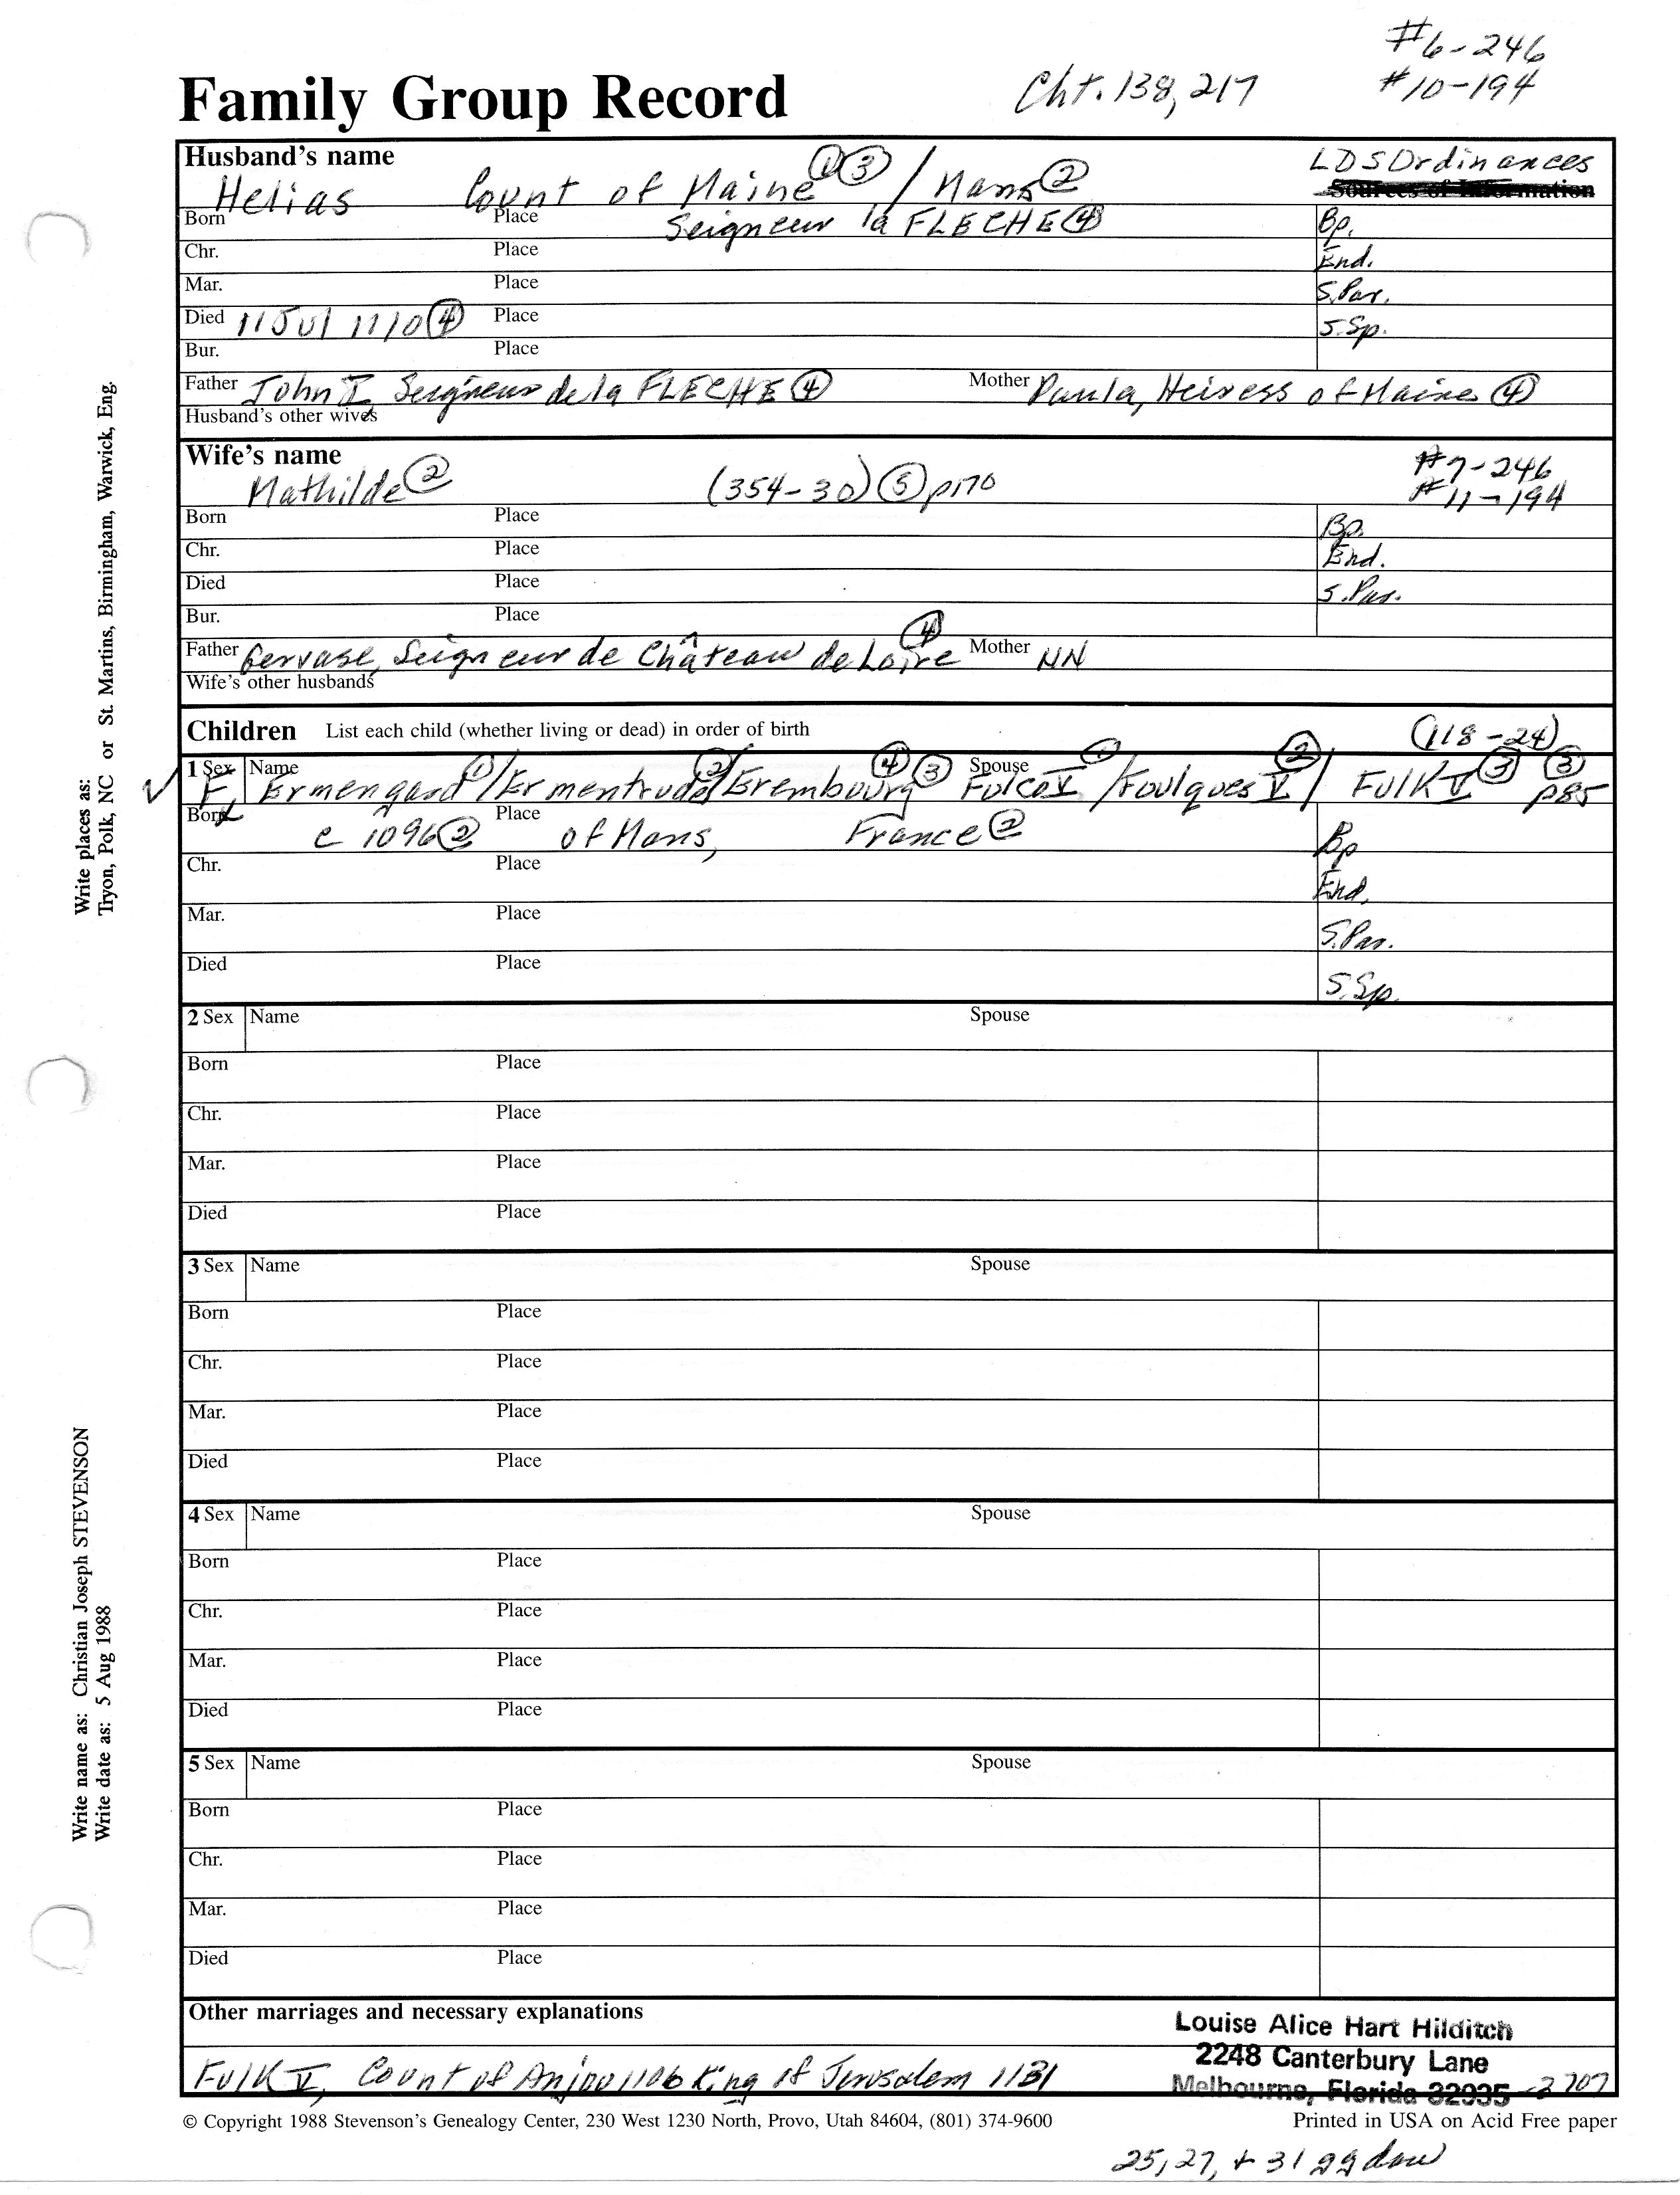 #6-246
Family Group Record Cht. 138, 217 #10-194
Husband's name LDS Ordinances
Helias Count of Maine ① ③ / Mans ② Sources of Information
Born Place Seigneur la FLECHE ④ Bp.
Chr. Place End.
Mar. Place S.Par.
Died 11 Jul 1110 ④ Place S.Sp.
Bur. Place
Father John I Seigneur de la FLECHE ④ Mother Paula, Heiress of Maine ④
Husband's other wives
Wife's name #7-246
Mathilde ② (354-30) ⑤ p170 #11-194
Born Place Bp.
Chr. Place End.
Died Place S.Par.
Bur. Place
Father Gervase, Seigneur de Château de Loire ④ Mother NN
Wife's other husbands
Children List each child (whether living or dead) in order of birth (118-24)
1 Sex Name Spouse
✓ F. Ermengard ① / Ermentrude ② / Erembourg ④ ③ Fulco V ① / Foulques V ② / Fulk V ③ ③ p85
Born c 1096 ② Place of Mans, France ② Bp
Chr. Place End.
Mar. Place S.Par.
Died Place S.Sp.
2 Sex Name Spouse
Born Place
Chr. Place
Mar. Place
Died Place
3 Sex Name Spouse
Born Place
Chr. Place
Mar. Place
Died Place
4 Sex Name Spouse
Born Place
Chr. Place
Mar. Place
Died Place
5 Sex Name Spouse
Born Place
Chr. Place
Mar. Place
Died Place
Other marriages and necessary explanations
Fulk V, Count of Anjou 1106 King of Jerusalem 1131
Louise Alice Hart Hilditch
2248 Canterbury Lane
Melbourne, Florida 32935-2707
© Copyright 1988 Stevenson's Genealogy Center, 230 West 1230 North, Provo, Utah 84604, (801) 374-9600 Printed in USA on Acid Free paper
25, 27, + 31 gg dau
Write places as:
Tryon, Polk, NC or St. Martins, Birmingham, Warwick, Eng.
Write name as: Christian Joseph STEVENSON
Write date as: 5 Aug 1988